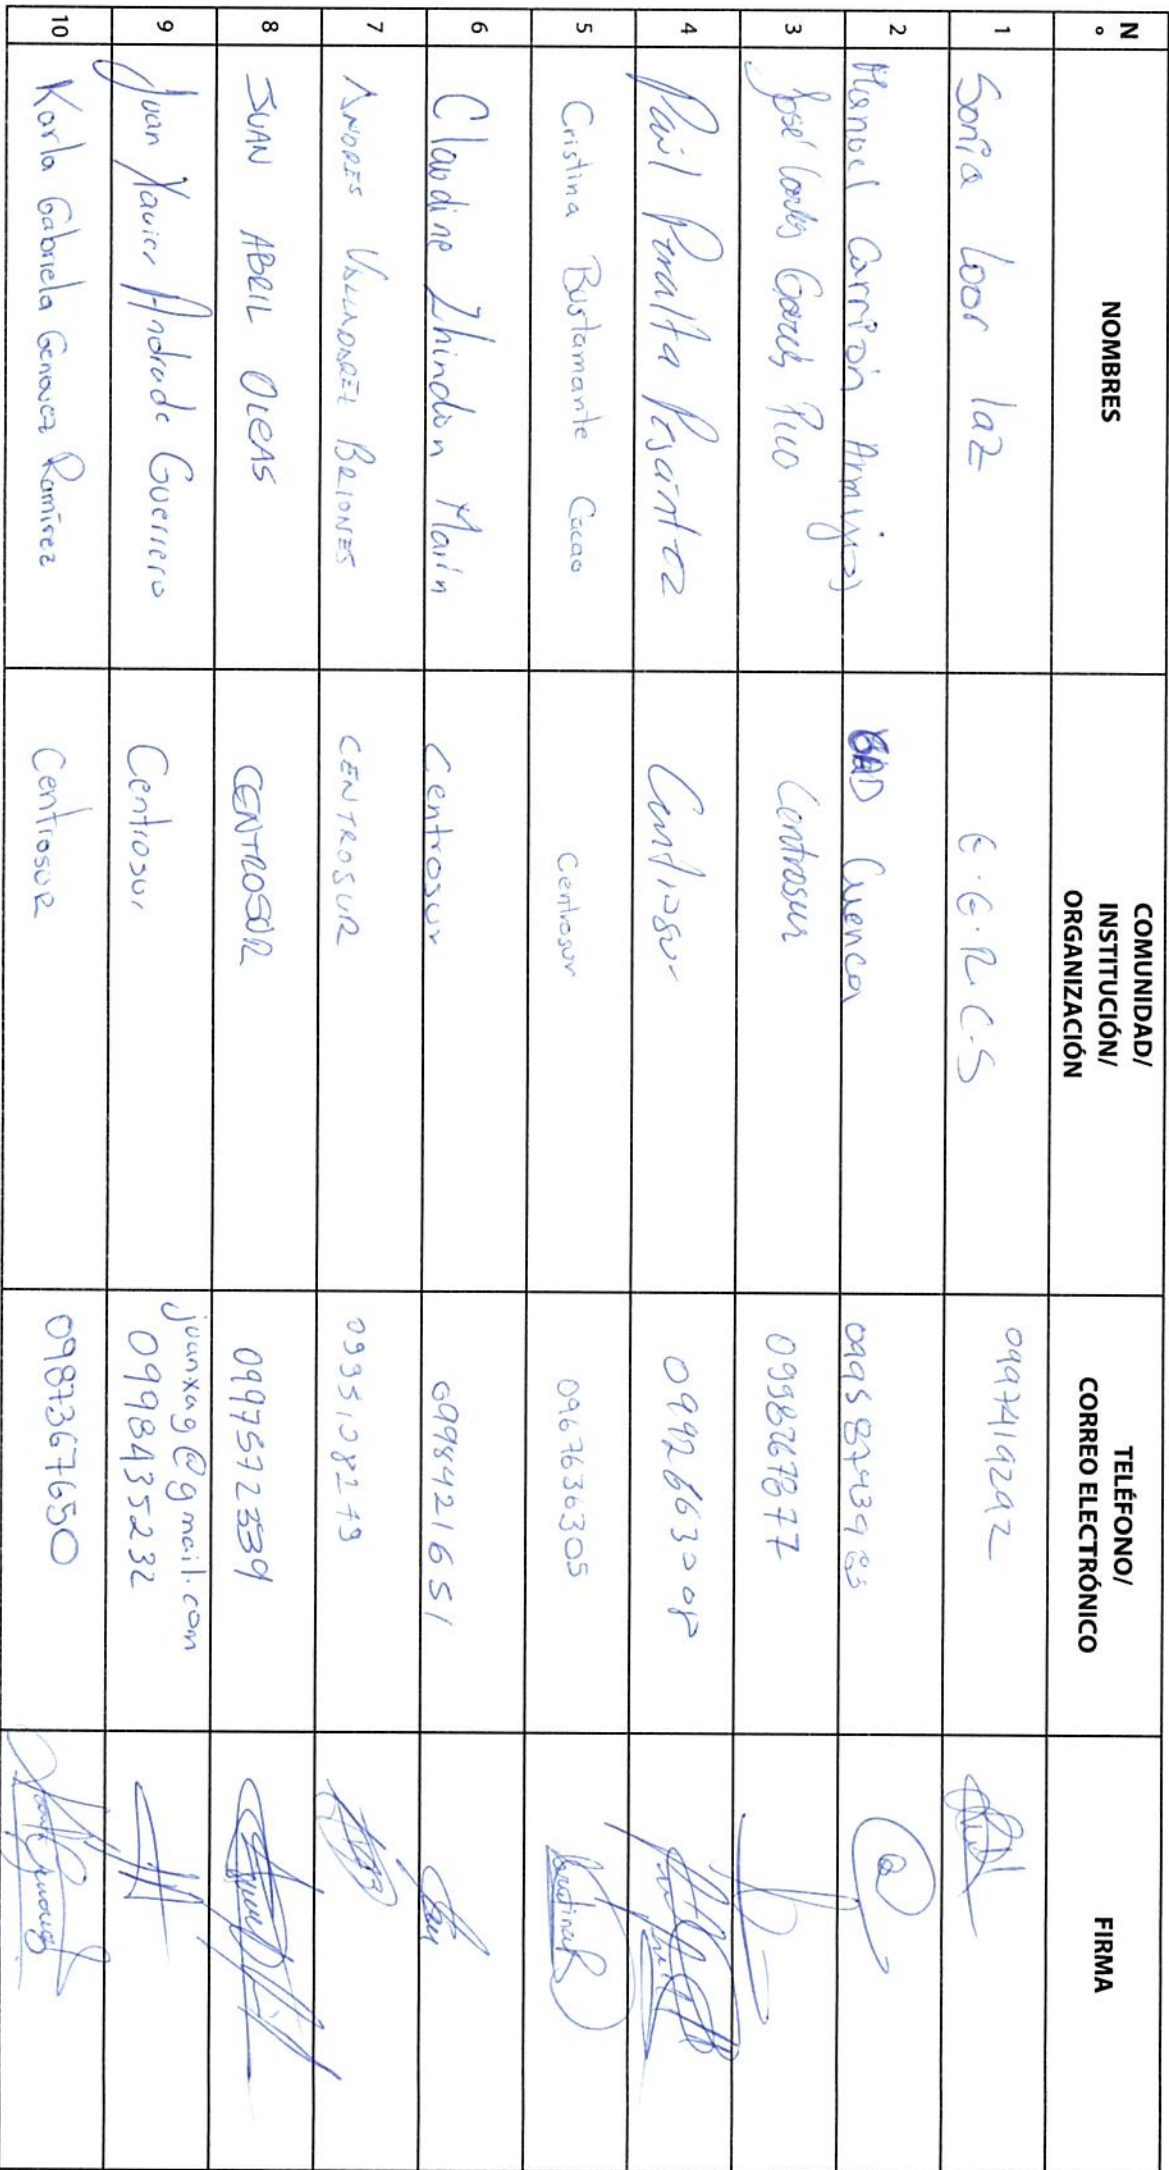 N° NOMBRES COMUNIDAD/ INSTITUCIÓN/ ORGANIZACIÓN TELÉFONO/ CORREO ELECTRÓNICO FIRMA
1 Sonia Loor laz E.E.R.C.S 0997419292
2 Manuel Carrión Armijos GAD Cuenca
3 José Carlos Garcés Pico Centrosur 0998267877
4 Paúl Peralta Pesántez Centrosur 0992663008
5 Cristina Bustamante Cacao Centrosur 0967636305
6 Claudine Zhindon Marín Centrosur 0998421651
7 ANDRES VALLADAREZ BRIONES CENTROSUR 0995108279
8 JUAN ABRIL OLEAS CENTROSUR 0997572339
9 Juan Xavier Andrade Guerrero Centrosur juanxag@gmail.com
0998435232
10 Karla Gabriela Genovez Ramírez Centrosur 0987367650